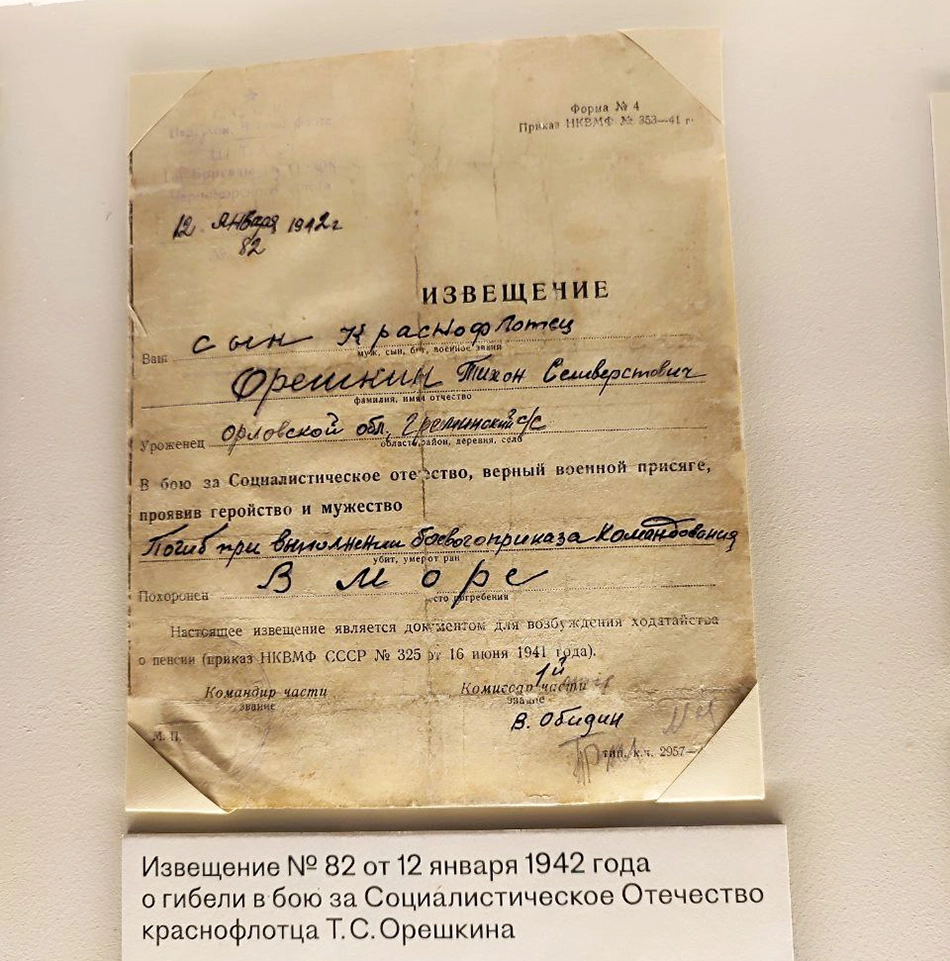 Форма № 4
Приказ НКВМФ № 353—41 г.
12 января 1942 г
82
ИЗВЕЩЕНИЕ
Ваш сын Краснофлотец
муж, сын, брат, военное звание
Орешкин Тихон Селиверстович
фамилия, имя отчество
Уроженец Орловской обл, с/с
область, район, деревня, село
В бою за Социалистическое отечество, верный военной присяге,
проявив геройство и мужество
Погиб при выполнении боевого приказа Командования
убит, умер от ран
Похоронен В море
место погребения
Настоящее извещение является документом для возбуждения ходатайства
о пенсии (приказ НКВМФ СССР № 325 от 16 июня 1941 года).
Командир части
звание
Комиссар части
звание
В. Обидин
М. П.
тип. к.ч. 2957—
Извещение № 82 от 12 января 1942 года
о гибели в бою за Социалистическое Отечество
краснофлотца Т.С.Орешкина